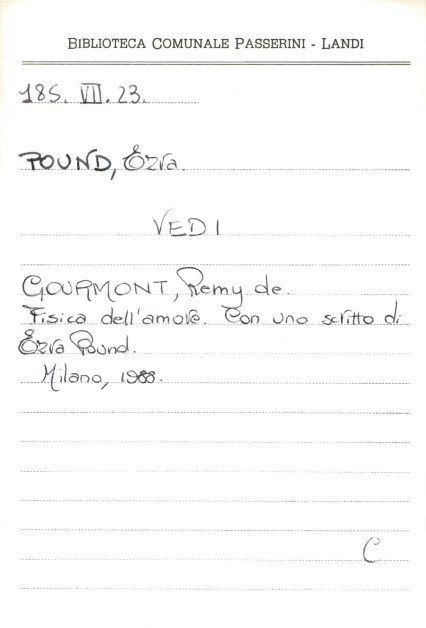 BIBLIOTECA COMUNALE PASSERINI - LANDI
185. VII. 23.
POUND, Ezra.
VEDI
GOURMONT, Remy de.
Fisica dell'amore. Con uno scritto di
Ezra Pound.
Milano, 1988.
C